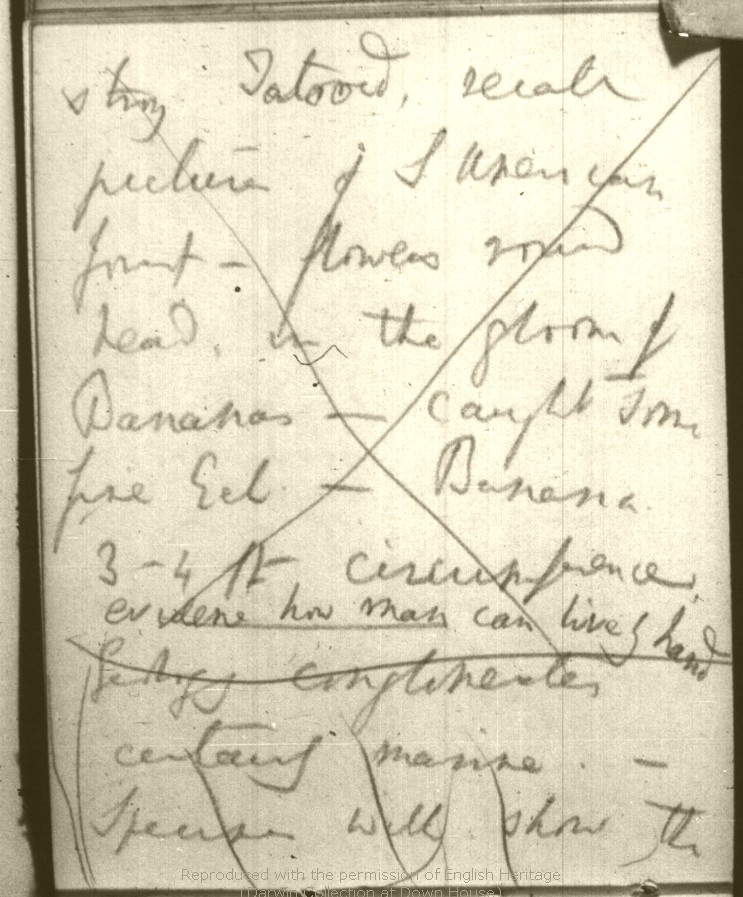 strong Tatooed, recals
picture of S American
forest — flowers round
head, in the gloom of
Bananas — caught some
fine Eel. — Banana
3-4 ft circumference,
evidence how man can live by hand
Geology conglomerates
certainly marine. —
Specimen will show the
Reproduced with the permission of English Heritage
(Darwin Collection at Down House)